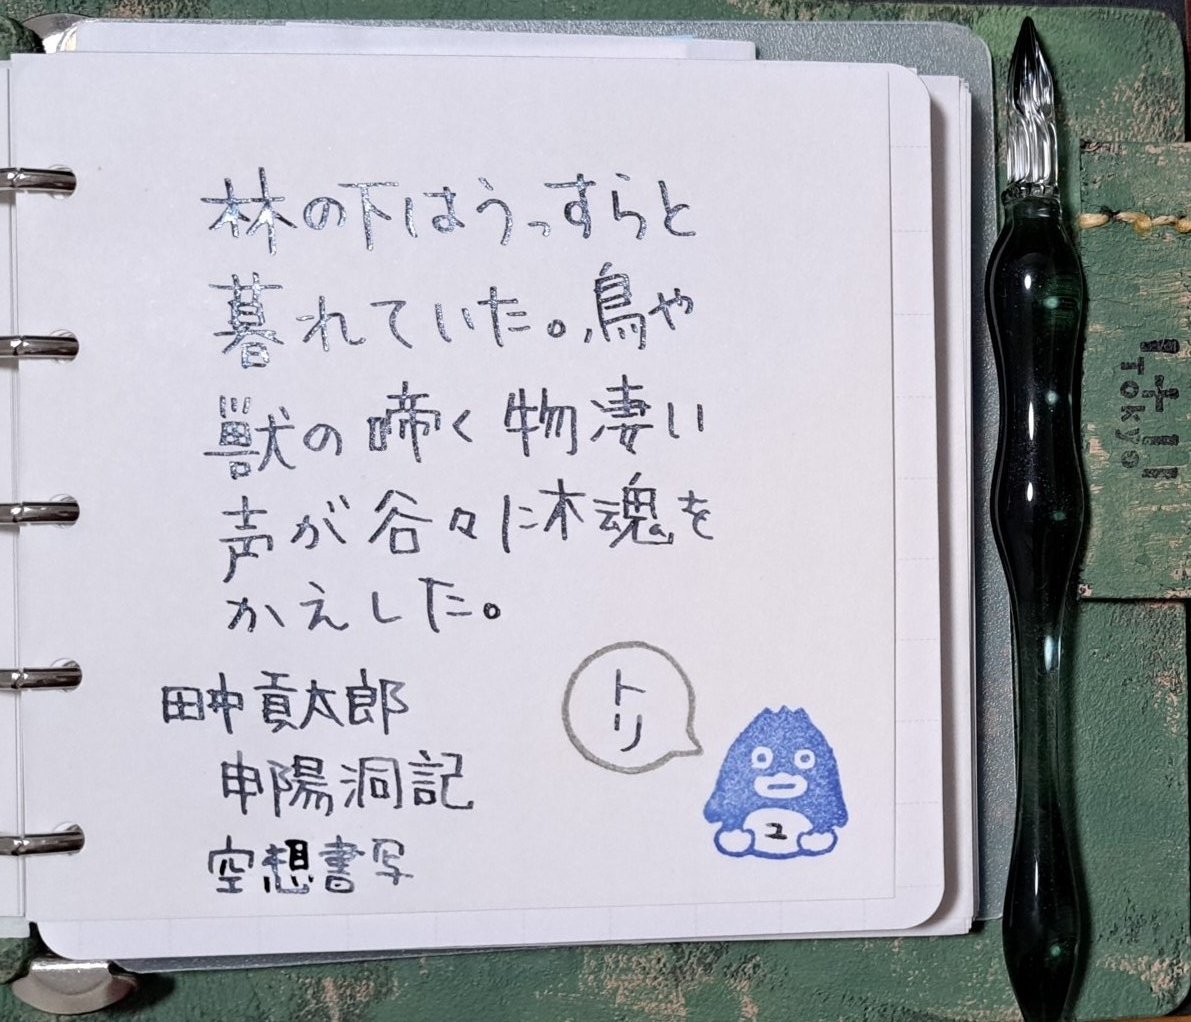 林の下はうっすらと
暮れていた。鳥や
獣の啼く物凄い
声が谷々に木魂を
かえした。
田中貢太郎
申陽洞記
空想書写
トリ
ユ
TOKYO